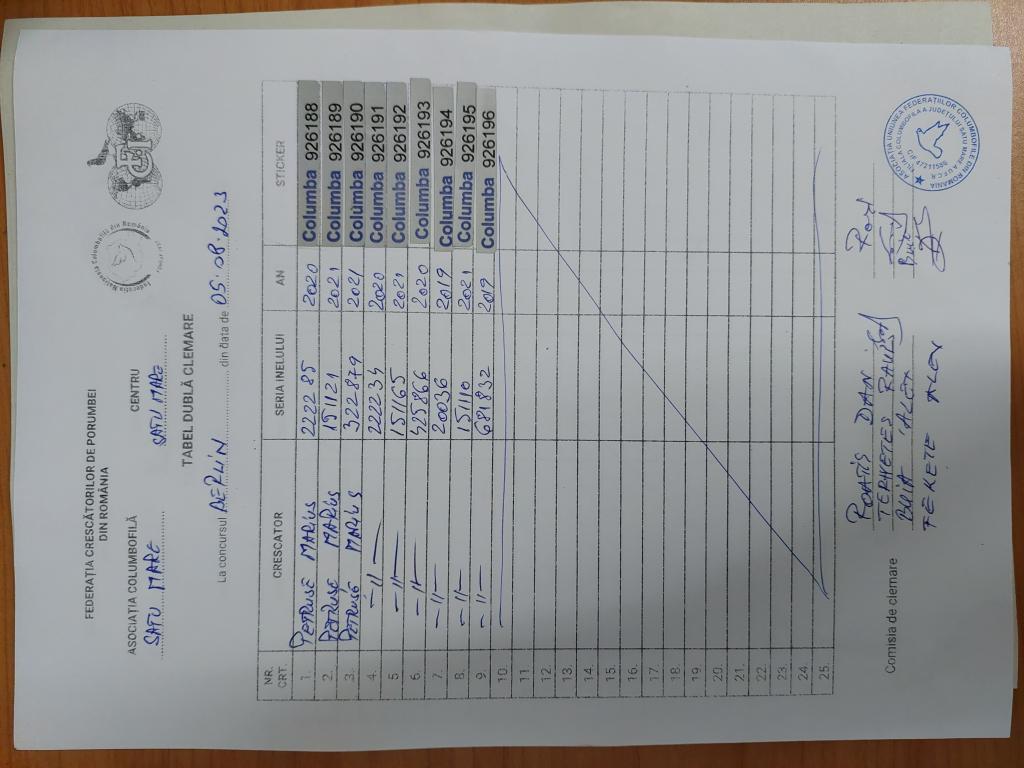 FEDERAȚIA CRESCĂTORILOR DE PORUMBEI
DIN ROMÂNIA
ASOCIAȚIA COLUMBOFILĂ CENTRU
SATU MARE SATU MARE
TABEL DUBLĂ CLEMARE
La concursul BERLIN din data de 05.08.2023
NR. CRT. CRESCATOR SERIA INELULUI AN STICKER
1. PETRUSE MARIUS 222285 2020 Columba 926188
2. PETRUSE MARIUS 151121 2021 Columba 926189
3. PETRUSE MARIUS 322879 2021 Columba 926190
4. -11- 222234 2020 Columba 926191
5. -11- 151165 2021 Columba 926192
6. -11- 425866 2020 Columba 926193
7. -11- 20036 2019 Columba 926194
8. -11- 151110 2021 Columba 926195
9. -11- 681832 2019 Columba 926196
10.
11
12.
13.
14.
15.
16.
17.
18.
19.
20.
21.
22.
23.
24.
25.
Comisia de clemare
DAN
ALEX
FEKETE ALEX
ASOCIAȚIA UNIUNEA FEDERAȚIILOR COLUMBOFILE DIN ROMANIA
CIF 47211586